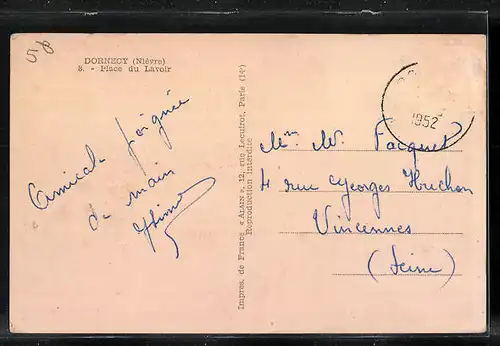 58
DORNECY (Nièvre)
8. - Place du Lavoir
Amicale poignée
de main
Impres. de France « ALAIN », 12, rue Lecuirot, Paris (14e)
Reproduction interdite
1952
Mme M. Pacquet
4 rue Georges Huchon
Vincennes
(Seine)